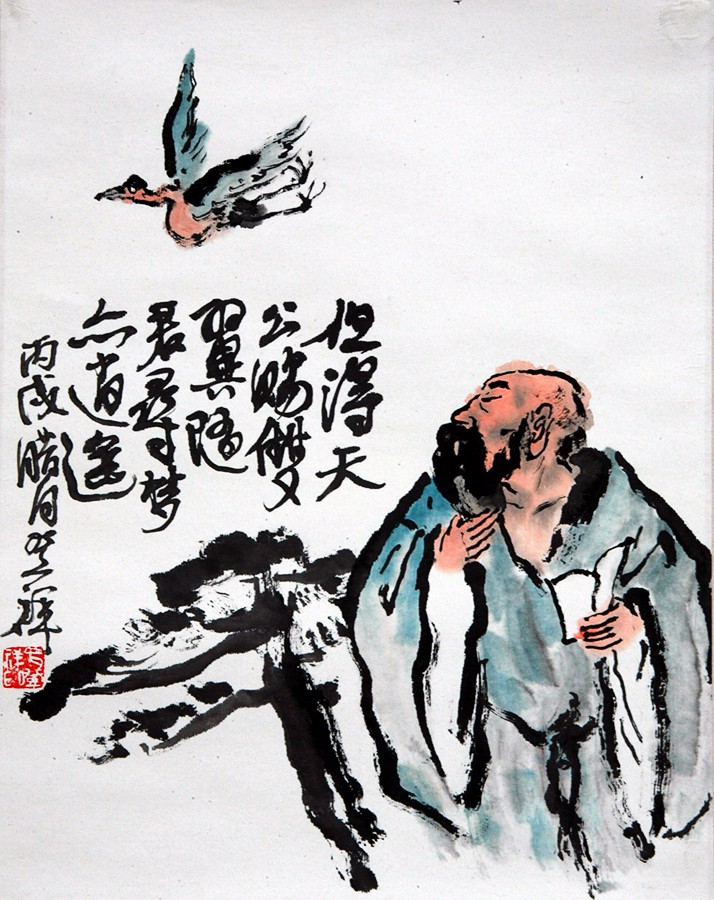 但得天
公赐双
翼随
君寻梦
亦逍遥
丙戌腊月